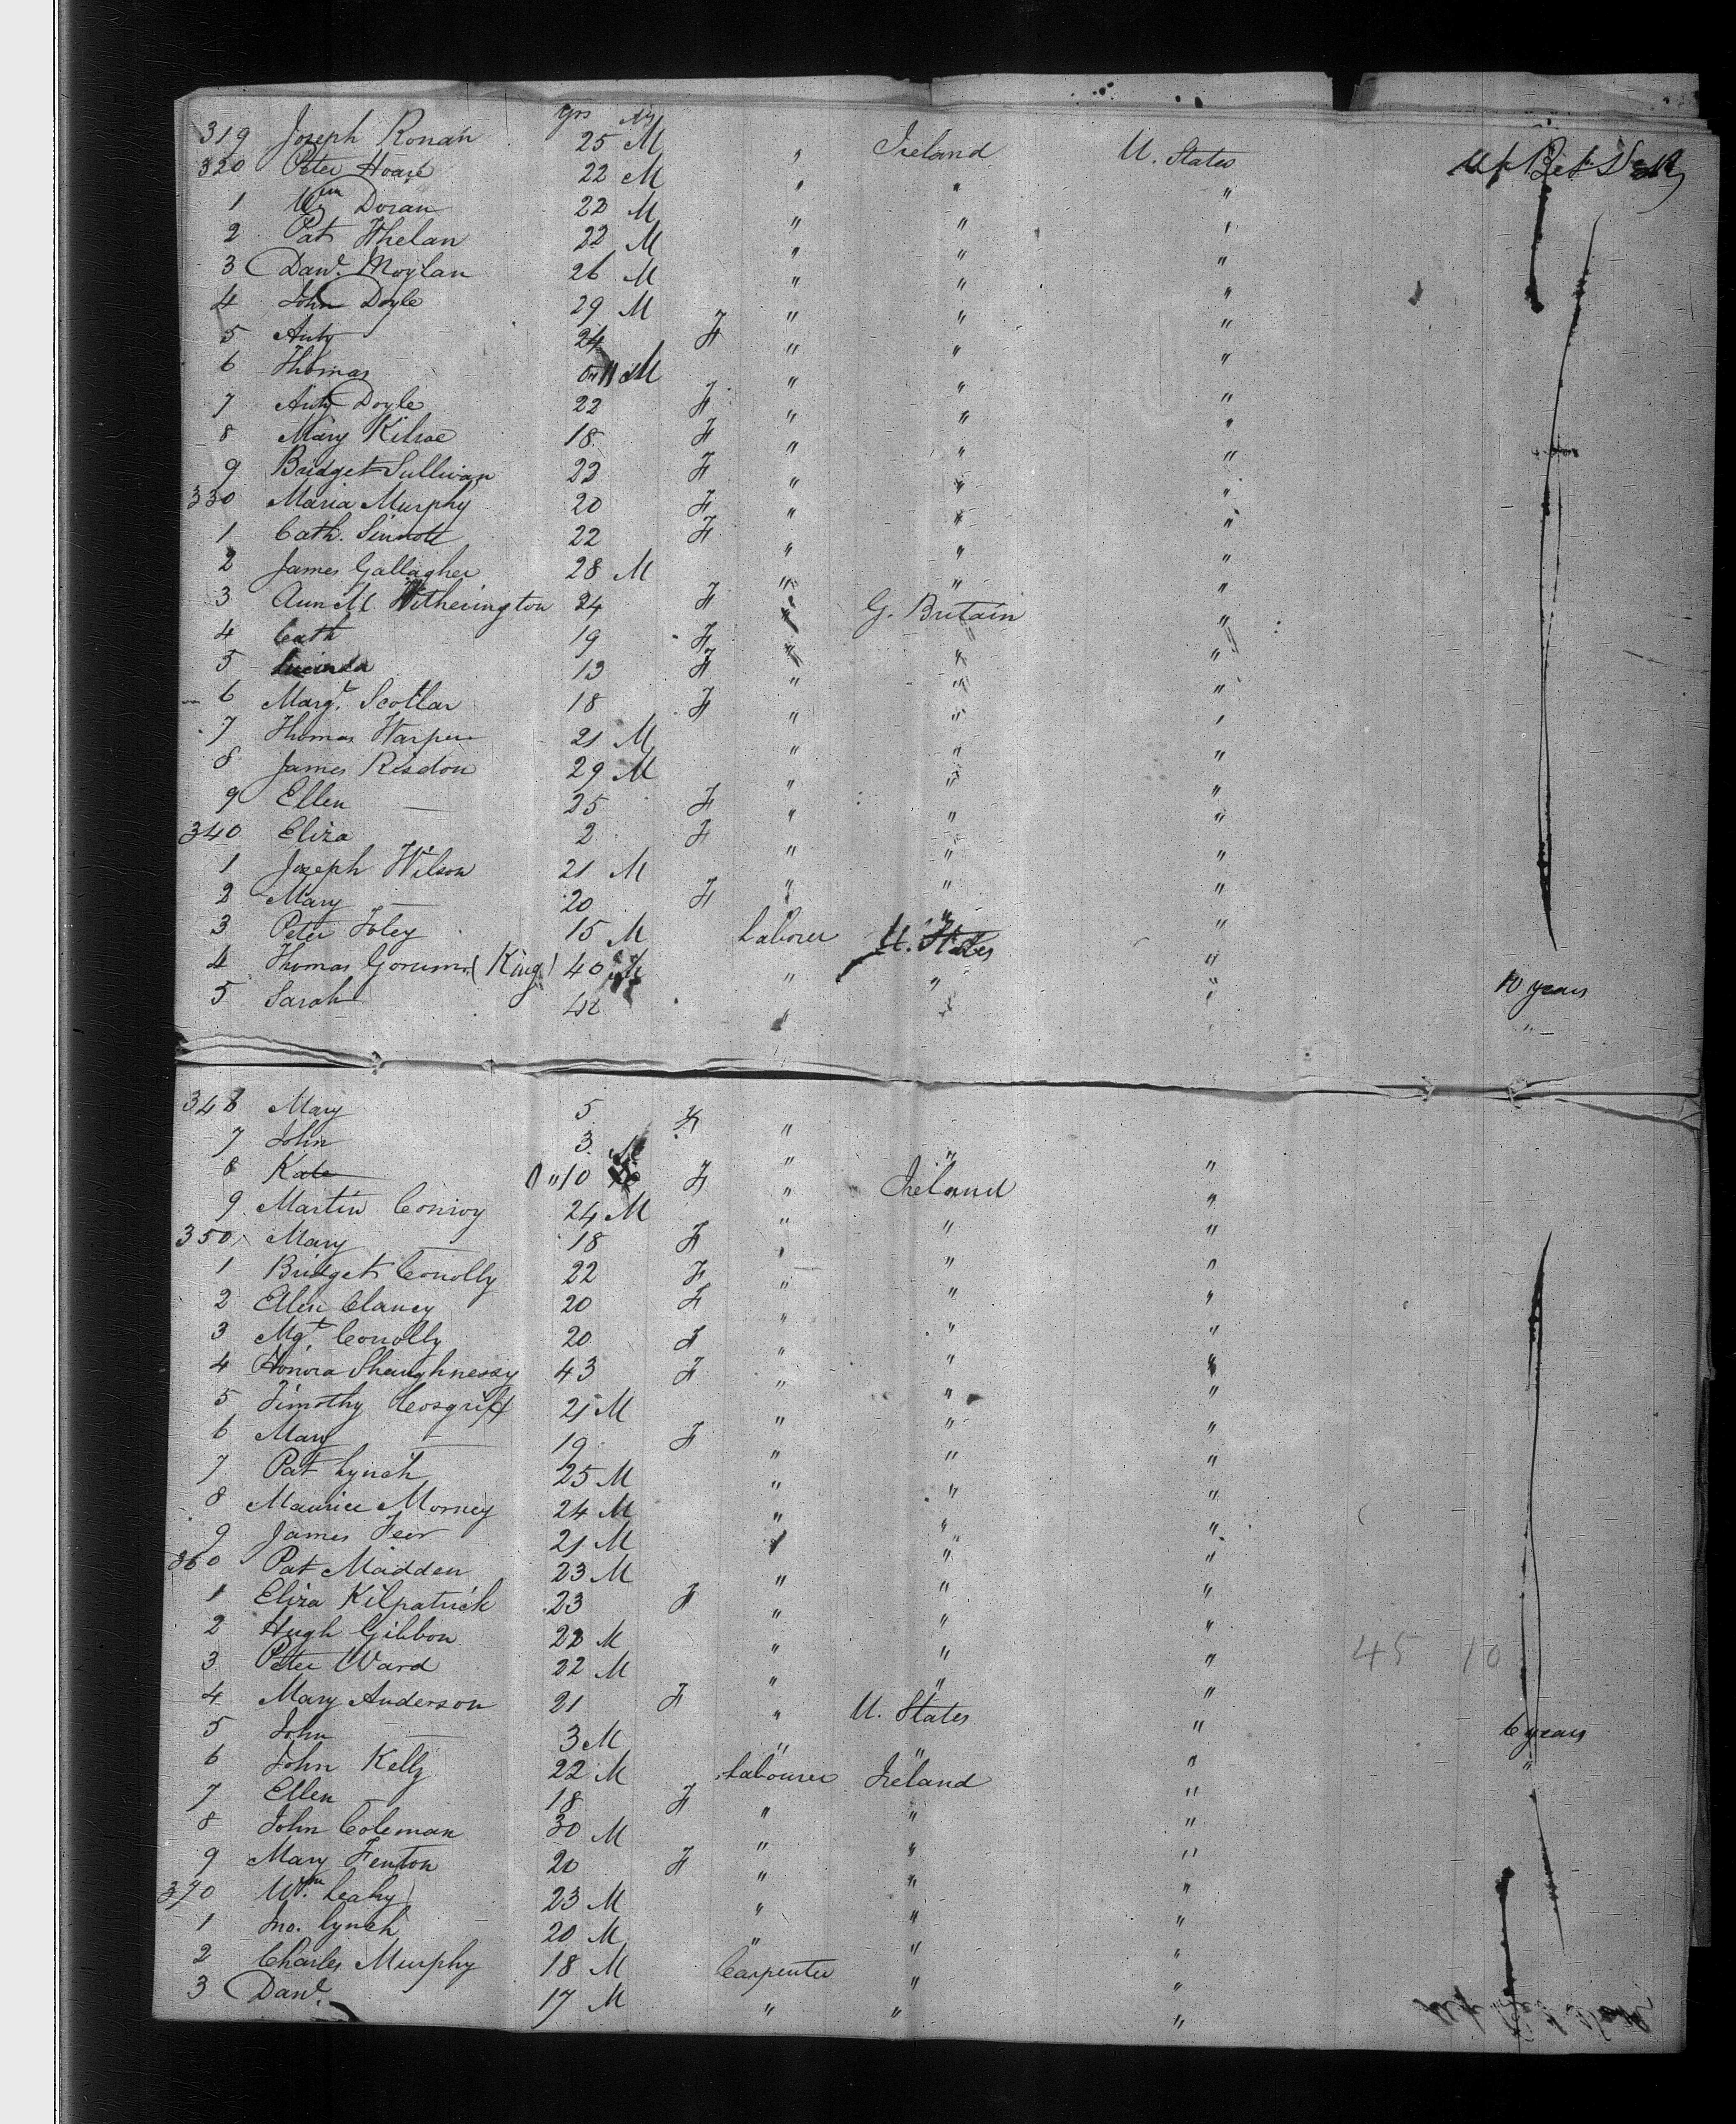 yrs Ms
319 Joseph Ronan 25 M " Ireland U. States Up Bet Deck
320 Peter Hoare 22 M " " "
1 Wm Doran 22 M " " "
2 Pat Whelan 22 M " " "
3 Danl. Moylan 26 M " " "
4 John Doyle 29 M " " "
5 Anty 24 F " " "
6 Thomas 11 M " " "
7 Anty Doyle 22 F " " "
8 Mary Kilroe 18 F " " "
9 Bridget Sullivan 22 F " " "
330 Maria Murphy 20 F " " "
1 Cath. Sinnott 22 F " " "
2 James Gallagher 28 M " " "
3 Ann M. Witherington 24 F " G. Britain "
4 Cath 19 F " " "
5 Lucinda 13 F " " "
6 Margt. Scollar 18 F " " "
7 Thomas Harper 21 M " " "
8 James Risdon 29 M " " "
9 Ellen — 25 F " " "
340 Eliza 2 F " " "
1 Joseph Wilson 21 M " " "
2 Mary — 20 F " " "
3 Peter Foley 15 M Laborer U. States "
4 Thomas (King) 40 " " " 10 years
5 Sarah 42 " " " "
346 Mary 5 F "
7 John 3 M " " "
8 Kate 0 " 10 F " Ireland "
9 Martin Conroy 24 M " " "
350 Mary — 18 F " " "
1 Bridget Conolly 22 F " " "
2 Ellen Clancy 20 F " " "
3 Mgt. Conolly 20 F " " "
4 Honora Shaughnessy 43 F " " "
5 Timothy Cosgriff 21 M " " "
6 Mary — 19 F " " "
7 Pat Lynch 25 M " " "
8 Maurice Morney 24 M " " "
9 James Feer 21 M " " "
360 Pat Madden 23 M " " "
1 Eliza Kilpatrick 23 F " " "
2 Hugh Gibbon 22 M " " " 45 10
3 Peter Ward 22 M " " "
4 Mary Anderson 21 F " U. States " 6 years
5 John — 3 M " " " "
6 John Kelly 22 M Labourer Ireland "
7 Ellen — 18 F " " "
8 John Coleman 30 M " " "
9 Mary Fenton 20 F " " "
370 Wm. Leahy 23 M " " "
1 Jno. Lynch 20 M " " "
2 Charles Murphy 18 M Carpenter " "
3 Danl. 17 M " " "